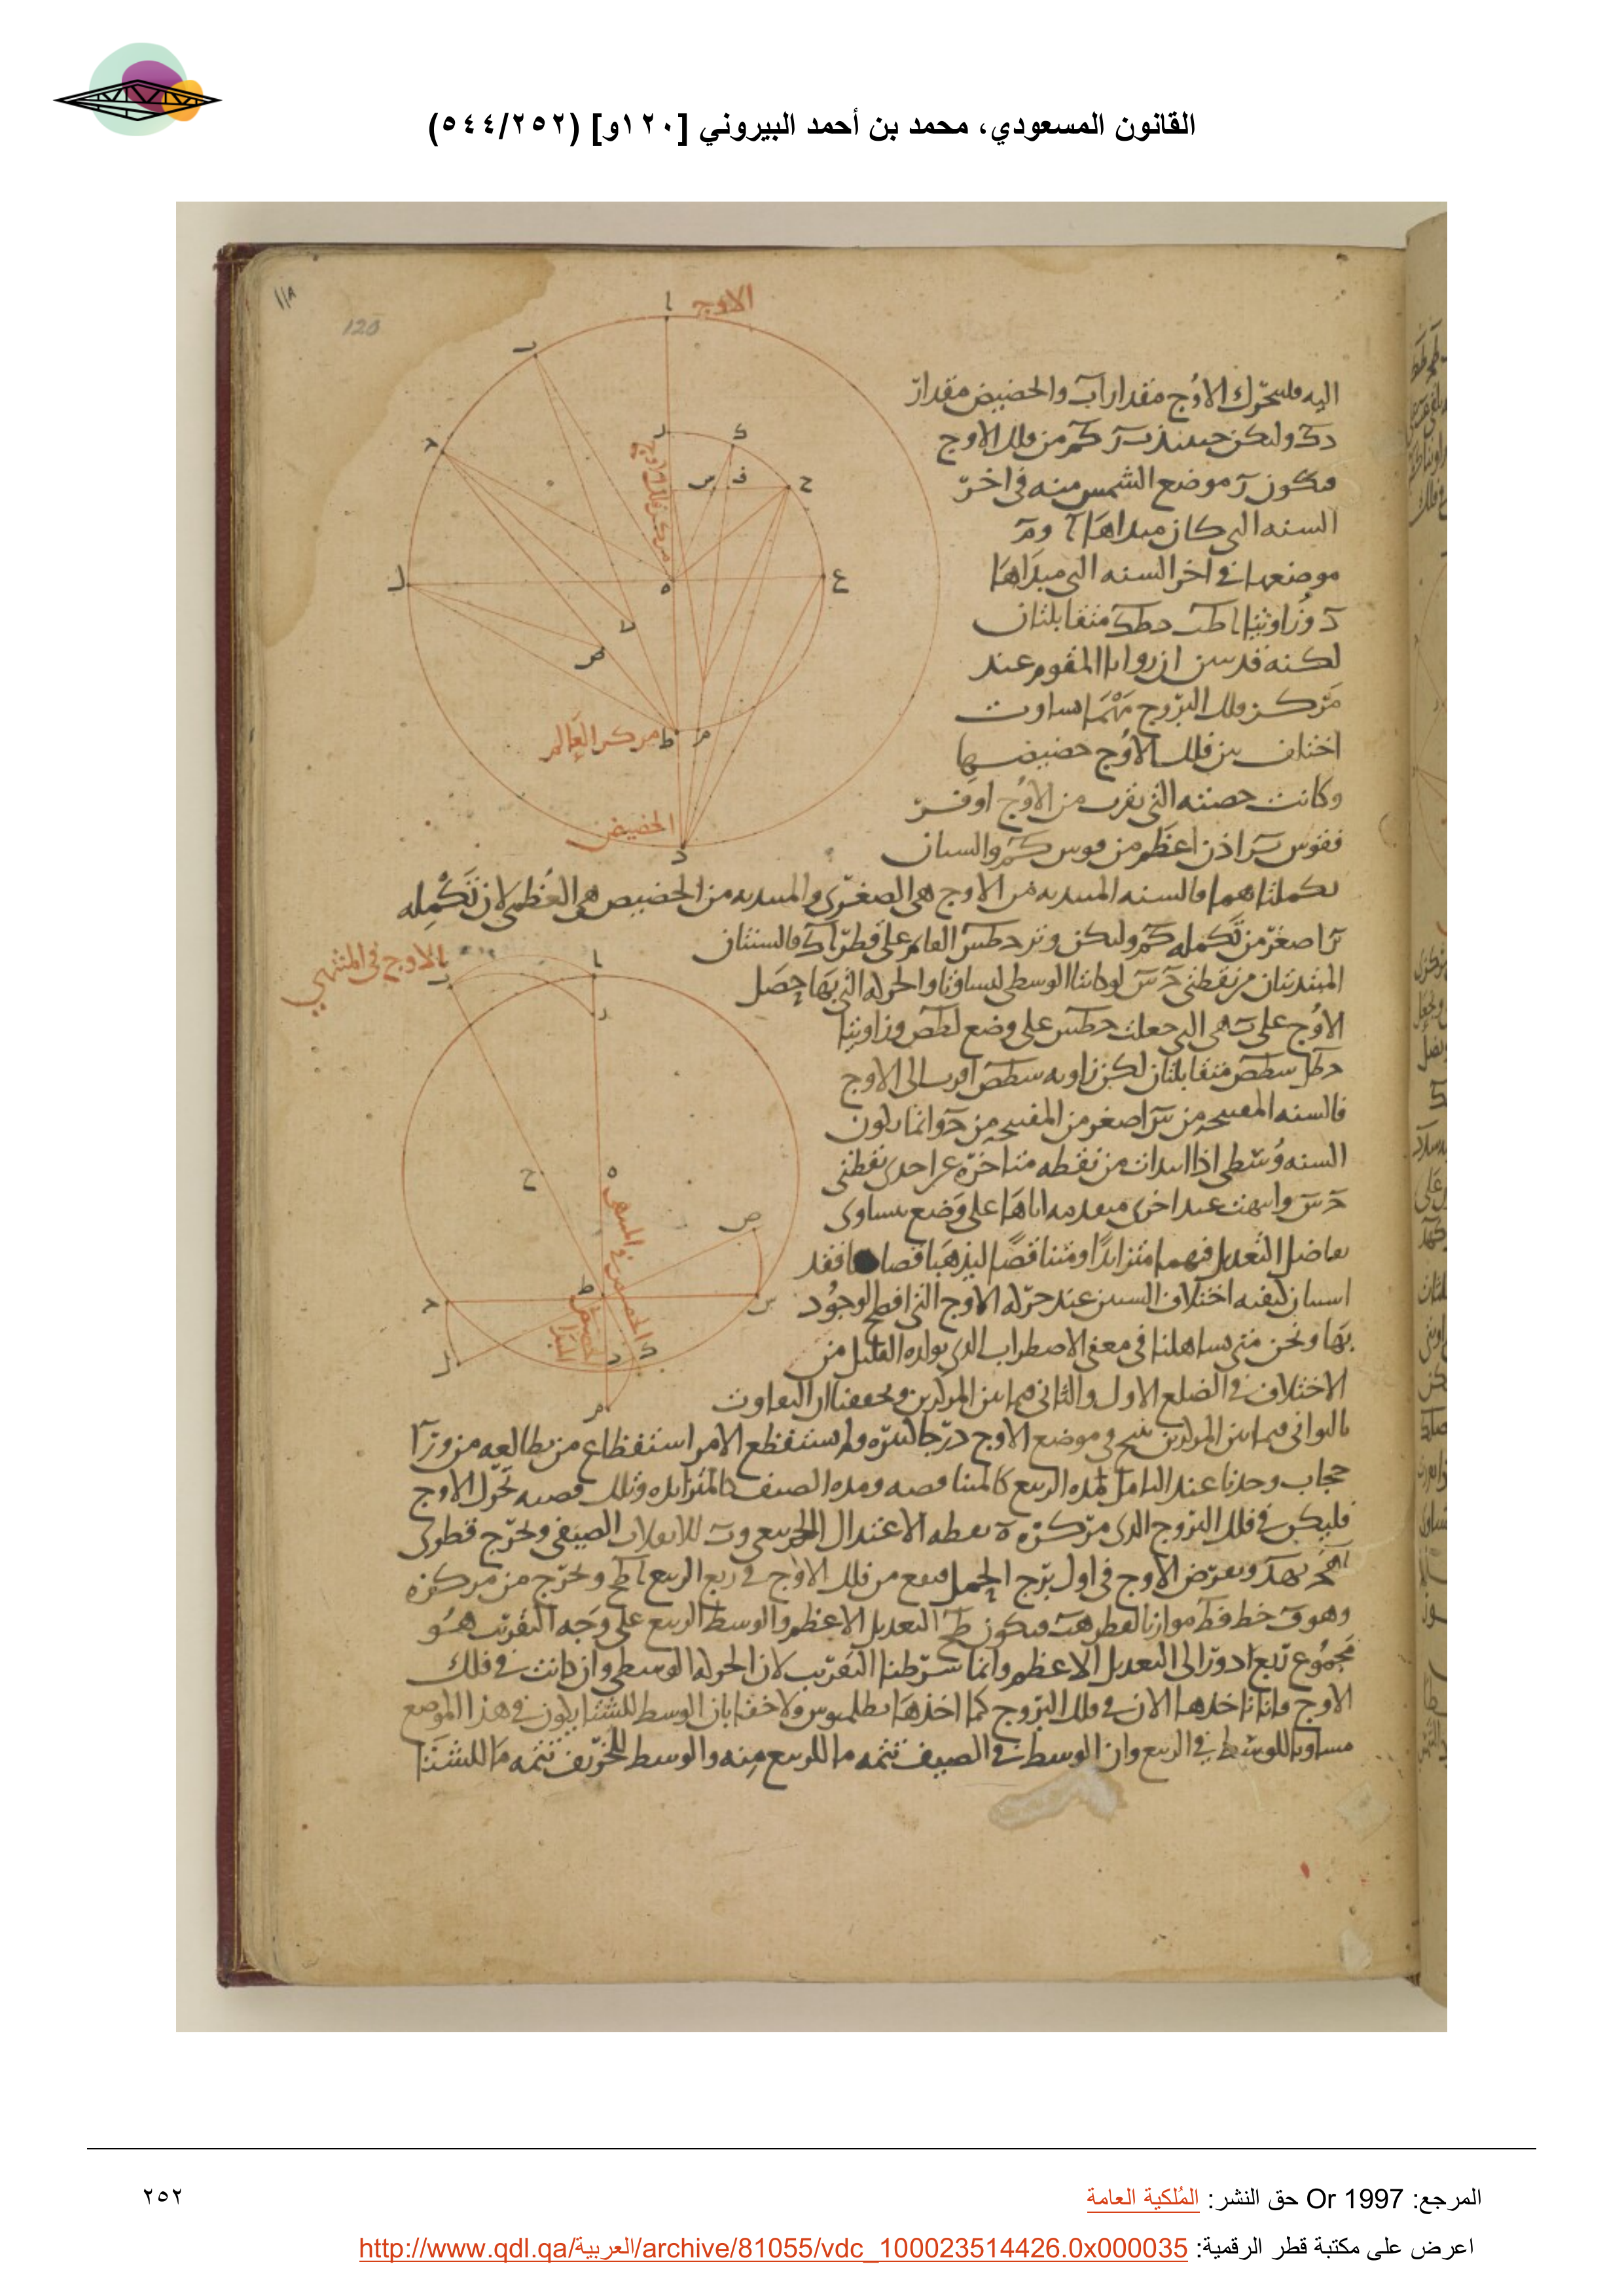 القانون المسعودي، محمد بن أحمد البيروني [١٢٠و] (٥٤٤/٢٥٢)
١١٨
120
الاوج
اليه فليتحرك الاوج مقدار اب والحضيض مقدار
دك وليكن حينئذ كم من فلك الاوج
فيكون ر موضع الشمس منه في اخر
السنه التي كان مبداها ا وم
موضعها في اخر السنه التي مبداها
د وزاويتا اطب دطك متقابلتان
لكنه قد تبين ان زوايا المقوم عند
مركز فلك البروج مهما تساوت
اختلف من فلك الاوج حصصها
وكانت حصته التي بقرب من الاوج اوفر
فقوس اذن اعظم من قوس كم والسنتان
تكملتاهما فالسنه المبتديه من الاوج هي الصغرى والمبتديه من الحضيض هي العظمى لان تكمله
را اصغر من تكمله كم وليكن وتر حطس القائم على قطر اد فالسنتان
المبتديتان من نقطتي ح س لو كانتا الوسطى لتساوتا والحركه التي بها حصل
الاوج على ب هي التي جعلت حطس على وضع لطص وزاويتا
حطل سطص متقابلتان لكن زاويه سطص اقرب الى الاوج
فالسنه المفتتحه من س اصغر من المفتتحه من ح وانما يكون
السنه وسطى اذا ابتدات من نقطه متاخره عن احدى نقطتي
ح س وانتهت عند اخرى متقدمه اياها على وضع يساوى
تفاضل التعديل فيهما متزايدا ومتناقصا ليذهبا قصاصا فقد
استبان كيفيه اختلاف السنين عند حركه الاوج التي افصح الوجود
بها ونحن متى تساهلنا في معنى الاضطراب الذي يولده القليل من
الاختلاف في الضلع الاول والثاني فيما بين المركزين وتحققنا ان التفاوت
بالثواني فيما بين المركزين ينتج في موضع الاوج درجا كثيره ولم نستفظع الامر استفظاع من يطالعه من ورآ
حجاب وجدنا عند التامل لمده الربيع كالمتناقصه ومده الصيف كالمتزايده وتلك قضيه تحرك الاوج
فليكن في فلك البروج الذي مركزه ه نقطه الاعتدال الربيعي وب للانقلاب الصيفي ونخرج قطرى
اهج بهد ونفرض الاوج في اول برج الحمل فيقع من فلك الاوج في ربع الربيع ونخرج من مركزه
وهو خط موازيا لقطر هب فيكون التعديل الاعظم والوسط الربيع على وجه التقريب هو
مجموع ربع ادوار الى التعديل الاعظم وانما شرطنا التقريب لان الحركه الوسطى وان كانت في فلك
الاوج فانا ناخذها الان في فلك البروج كما اخذها بطلميوس ولا خفا بان الوسط للشتا يكون في هذا الموضع
مساويا للوسط في الربيع وان الوسط في الصيف تتمه ما للربيع منه والوسط للخريف تتمه ما للشتا
مركز العالم
الحضيض
الاوج في المنتهى
المرجع: Or 1997 حق النشر: المُلكية العامة
اعرض على مكتبة قطر الرقمية: http://www.qdl.qa/العربية/archive/81055/vdc_100023514426.0x000035
٢٥٢